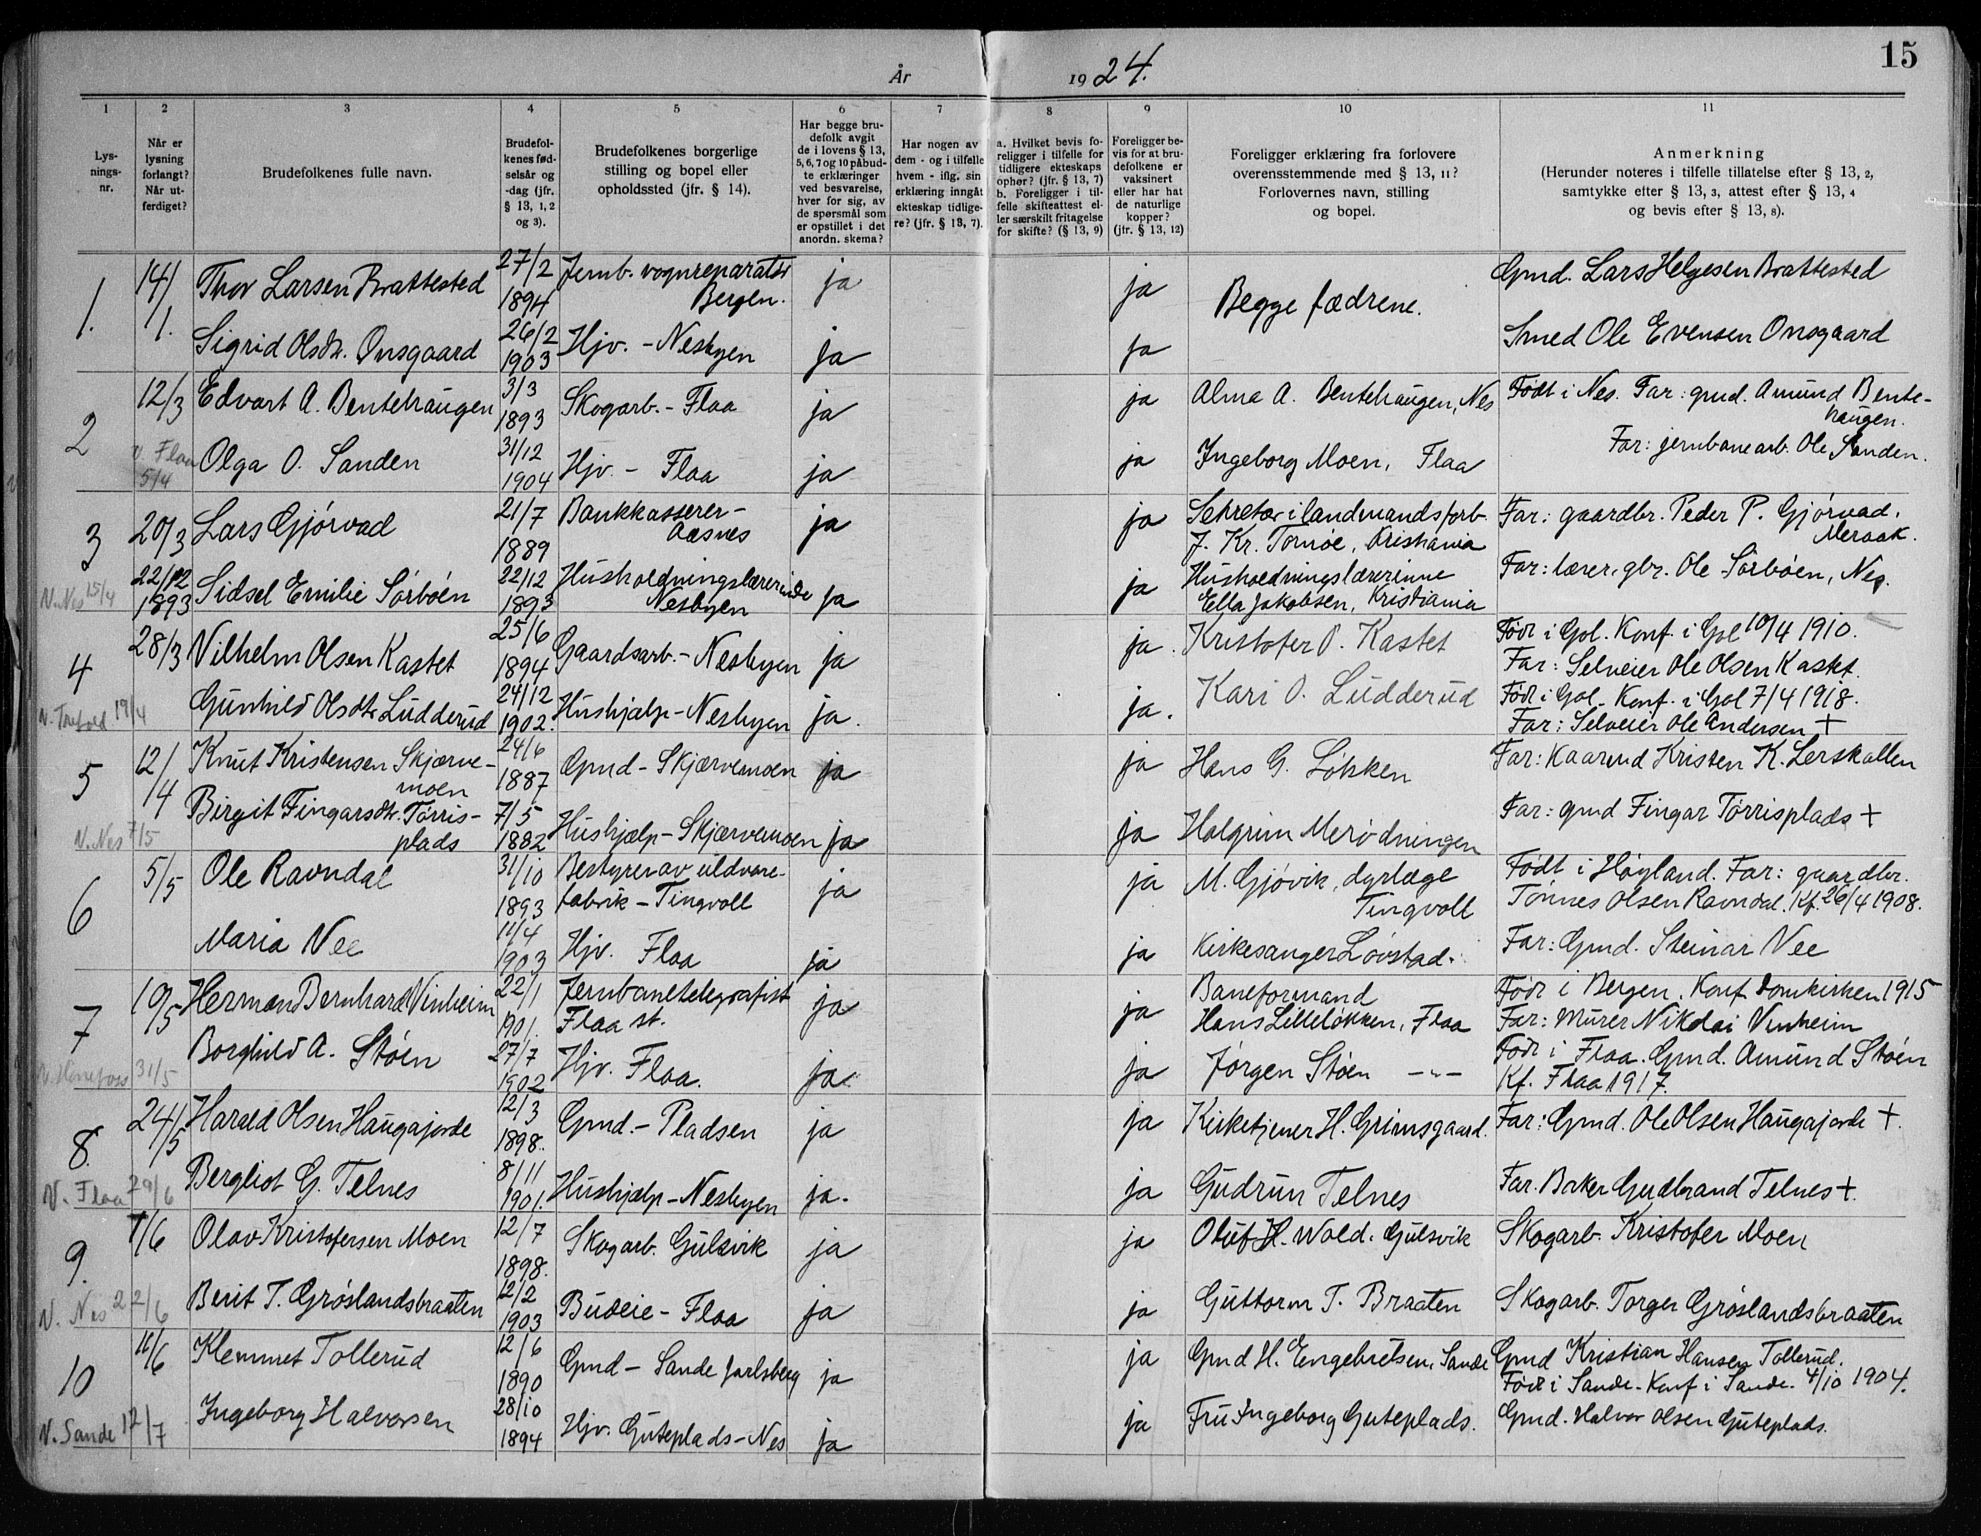 År 1924.
15
1 2 3 4 5 6 7 8 9 10 11
Lysningsnr.
Når er lysning forlangt? Når utferdiget?
Brudefolkenes fulle navn.
Brudefolkenes fødselsår og -dag (jfr. § 13, 1, 2 og 3).
Brudefolkenes borgerlige stilling og bopel eller opholdssted (jfr. § 14).
Har begge brudefolk avgit de i lovens § 13, 5, 6, 7 og 10 påbudte erklæringer ved besvarelse, hver for sig, av de spørsmål som er opstillet i det anordn. skema?
Har nogen av dem - og i tilfelle hvem - iflg. sin erklæring inngåt ekteskap tidligere? (jfr. § 13, 7).
a. Hvilket bevis foreligger i tilfelle for tidligere ekteskaps ophør? (jfr. § 13, 7) b. Foreligger i tilfelle skifteattest eller særskilt fritagelse for skifte? (§ 13, 9)
Foreligger bevis for at brudefolkene er vaksinert eller har hat de naturlige kopper? (jfr. § 13, 12)
Foreligger erklæring fra forlovere overensstemmende med § 13, 11? Forlovernes navn, stilling og bopel.
Anmerkning (Herunder noteres i tilfelle tillatelse efter § 13, 2, samtykke efter § 13, 3, attest efter § 13, 4 og bevis efter § 13, 8).
1. 14/1. Thor Larsen Brattested 27/2 1894 Jernb. vognreparatør Bergen. ja ja Begge fædrene. Gmd. Lars Helgesen Brattested
Sigrid Olsdtr. Onsgaard 26/2 1903 Hjv. - Nesbyen ja ja Smed Ole Evensen Onsgaard
2 12/3 Edvart A. Bentehaugen 3/3 1893 Skogarb. - Flaa ja ja Alma A. Bentehaugen, Nes Født i Nes. Far: gmd. Amund Bentehaugen.
v. Flaa 5/4 Olga O. Sanden 31/12 1904 Hjv. - Flaa ja ja Ingeborg Moen, Flaa Far: jernbanearb. Ole Sanden.
3 20/3 Lars Gjørvad 21/7 1889 Bankkasserer - Aasnes ja ja Sekretær i landmandsforb. J. Kr. Tornøe, Kristiania Far: gaardbr. Peder P. Gjørvad, Meraak.
N. Nes 15/4 22/12 1893 Sidsel Emilie Sörböen 22/12 1893 Husholdningslærerinde Nesbyen ja ja Husholdningslærerinne Ella Jakobsen, Kristiania Far: lærer, gbr. Ole Sörböen, Nes.
4 28/3 Vilhelm Olsen Kastet 25/6 1894 Gaardsarb. - Nesbyen ja ja. Kristofer O. Kastet Født i Gol. Konf. i Gol 10/4 1910. Far: Selveier Ole Olsen Kastet.
19/4 Gunhild Olsdtr Ludderud 24/12 1902. Hushjælp - Nesbyen ja. ja. Kari O. Ludderud Født i Gol. Konf. i Gol 7/4 1918. Far: Selveier Ole Andersen +
5 12/14 Knut Kristensen Skjærvemoen 24/6 1887 Gmd - Skjærvemoen ja ja Hans G. Løkken Far: Kaarmd Kristen K. Lerskallen
N. Nes 7/5 Birgit Fingarsdtr. Tørrisplads 7/5 1882 Hushjælp - Skjærvemoen ja ja Halgrim Merødningen Far: gmd Fingar Tørrisplads +
6 5/5 Ole Ravndal 31/10 1893 Bestyrer av uldvarefabrik - Tingvoll ja ja M. Gjøvik, dyrlæge Tingvoll Født i Høyland. Far: gaardbr. Tønnes Olsen Ravndal. Kf. 26/4 1908.
Maria Nee 11/4 1903 Hjv. Flaa ja ja Kirkesanger Løvstad. Far: Gmd. Steinar Nee
7 19/5 Herman Bernhard Vinheim 22/1 1901. Jernbanetelegrafist Flaa st. ja ja Baneformand Hans Lilleløkken, Flaa Født i Bergen. Konf. Domkirken 1915 Far: Murer Nikolai Vinheim
N. Hønefoss 31/5 Borghild A. Støen 27/7 1902 Hjv. Flaa. ja. ja Jørgen Støen -"- Født i Flaa. Gmd. Amund Støen Kf. Flaa 1917.
8. 24/5 Harald Olsen Haugajorde 12/3 1898. Gmd. - Pladsen ja ja Kirketjener H. Grimsgaard. Far: Gmd. Ole Olsen Haugajorde +.
N. Flaa 29/6 Bergliot G. Telnes 8/11 1901. Hushjælp - Nesbyen ja. ja Gudrun Telnes Far. Baker Gudbrand Telnes +.
9. 7/6 Olav Kristofersen Moen 12/7 1898. Skogarb. Gulsvik ja ja Oluf H. Wold. Gulsvik Skogarb. Kristofer Moen
N. Nes 22/6 Berit T. Grøslandsbraaten 12/2 1903 Budeie - Flaa ja ja Guttorm T. Braaten Skogarb. Torger Grøslandsbraaten
10 11/6 Klemmet Tollerud 12/6 1890 Gmd - Sande Jarlsberg ja ja Gmd H. Engebretsen, Sande Gmd Kristian Hansen Tollerud. Født i Sande. Konf i Sande. 4/10 1904.
N. Sande 12/7 Ingeborg Halvorsen 28/10 1894 Hjv. Guteplads - Nes ja ja Fru Ingeborg Guteplads. Gmd. Halvor Olsen Guteplads.